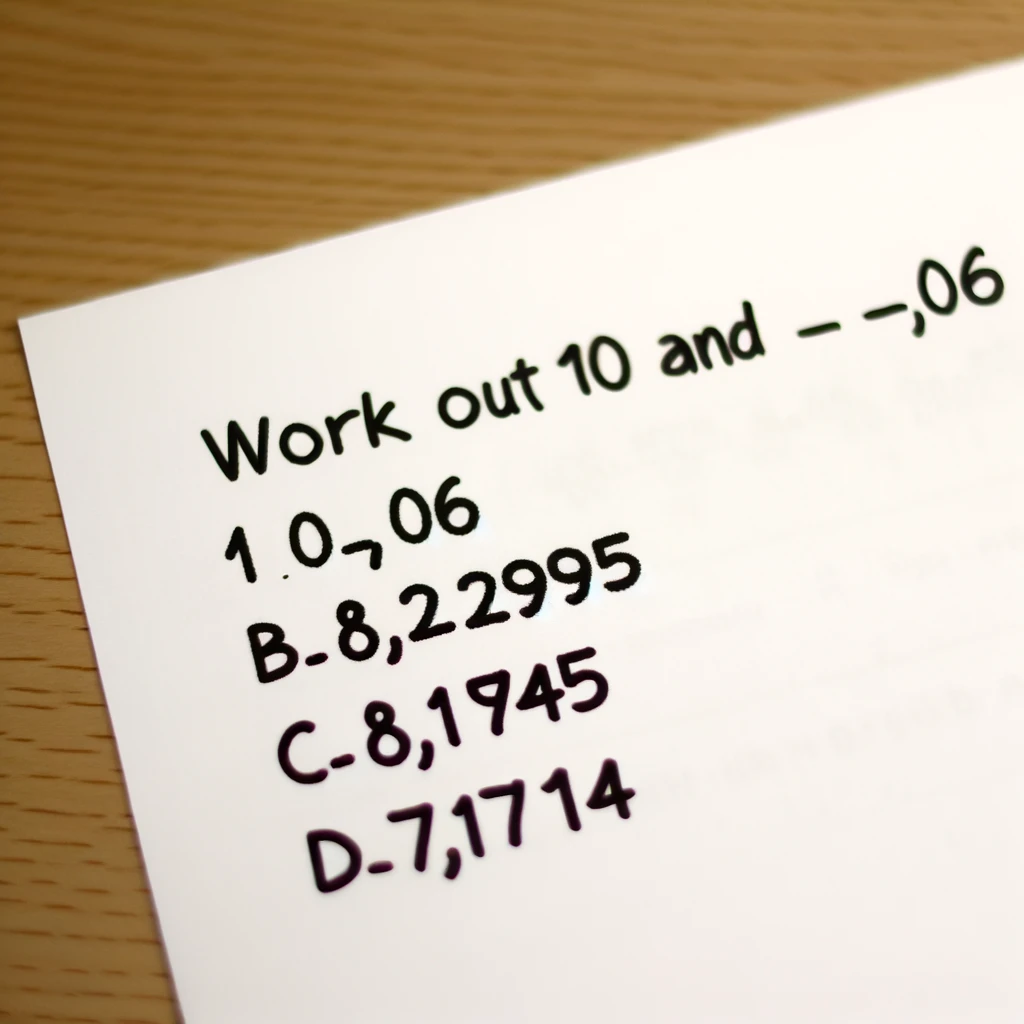 Work out 10 and – –,06
1.0-,06
B-8,22995
C-8,1945
D-7,1714